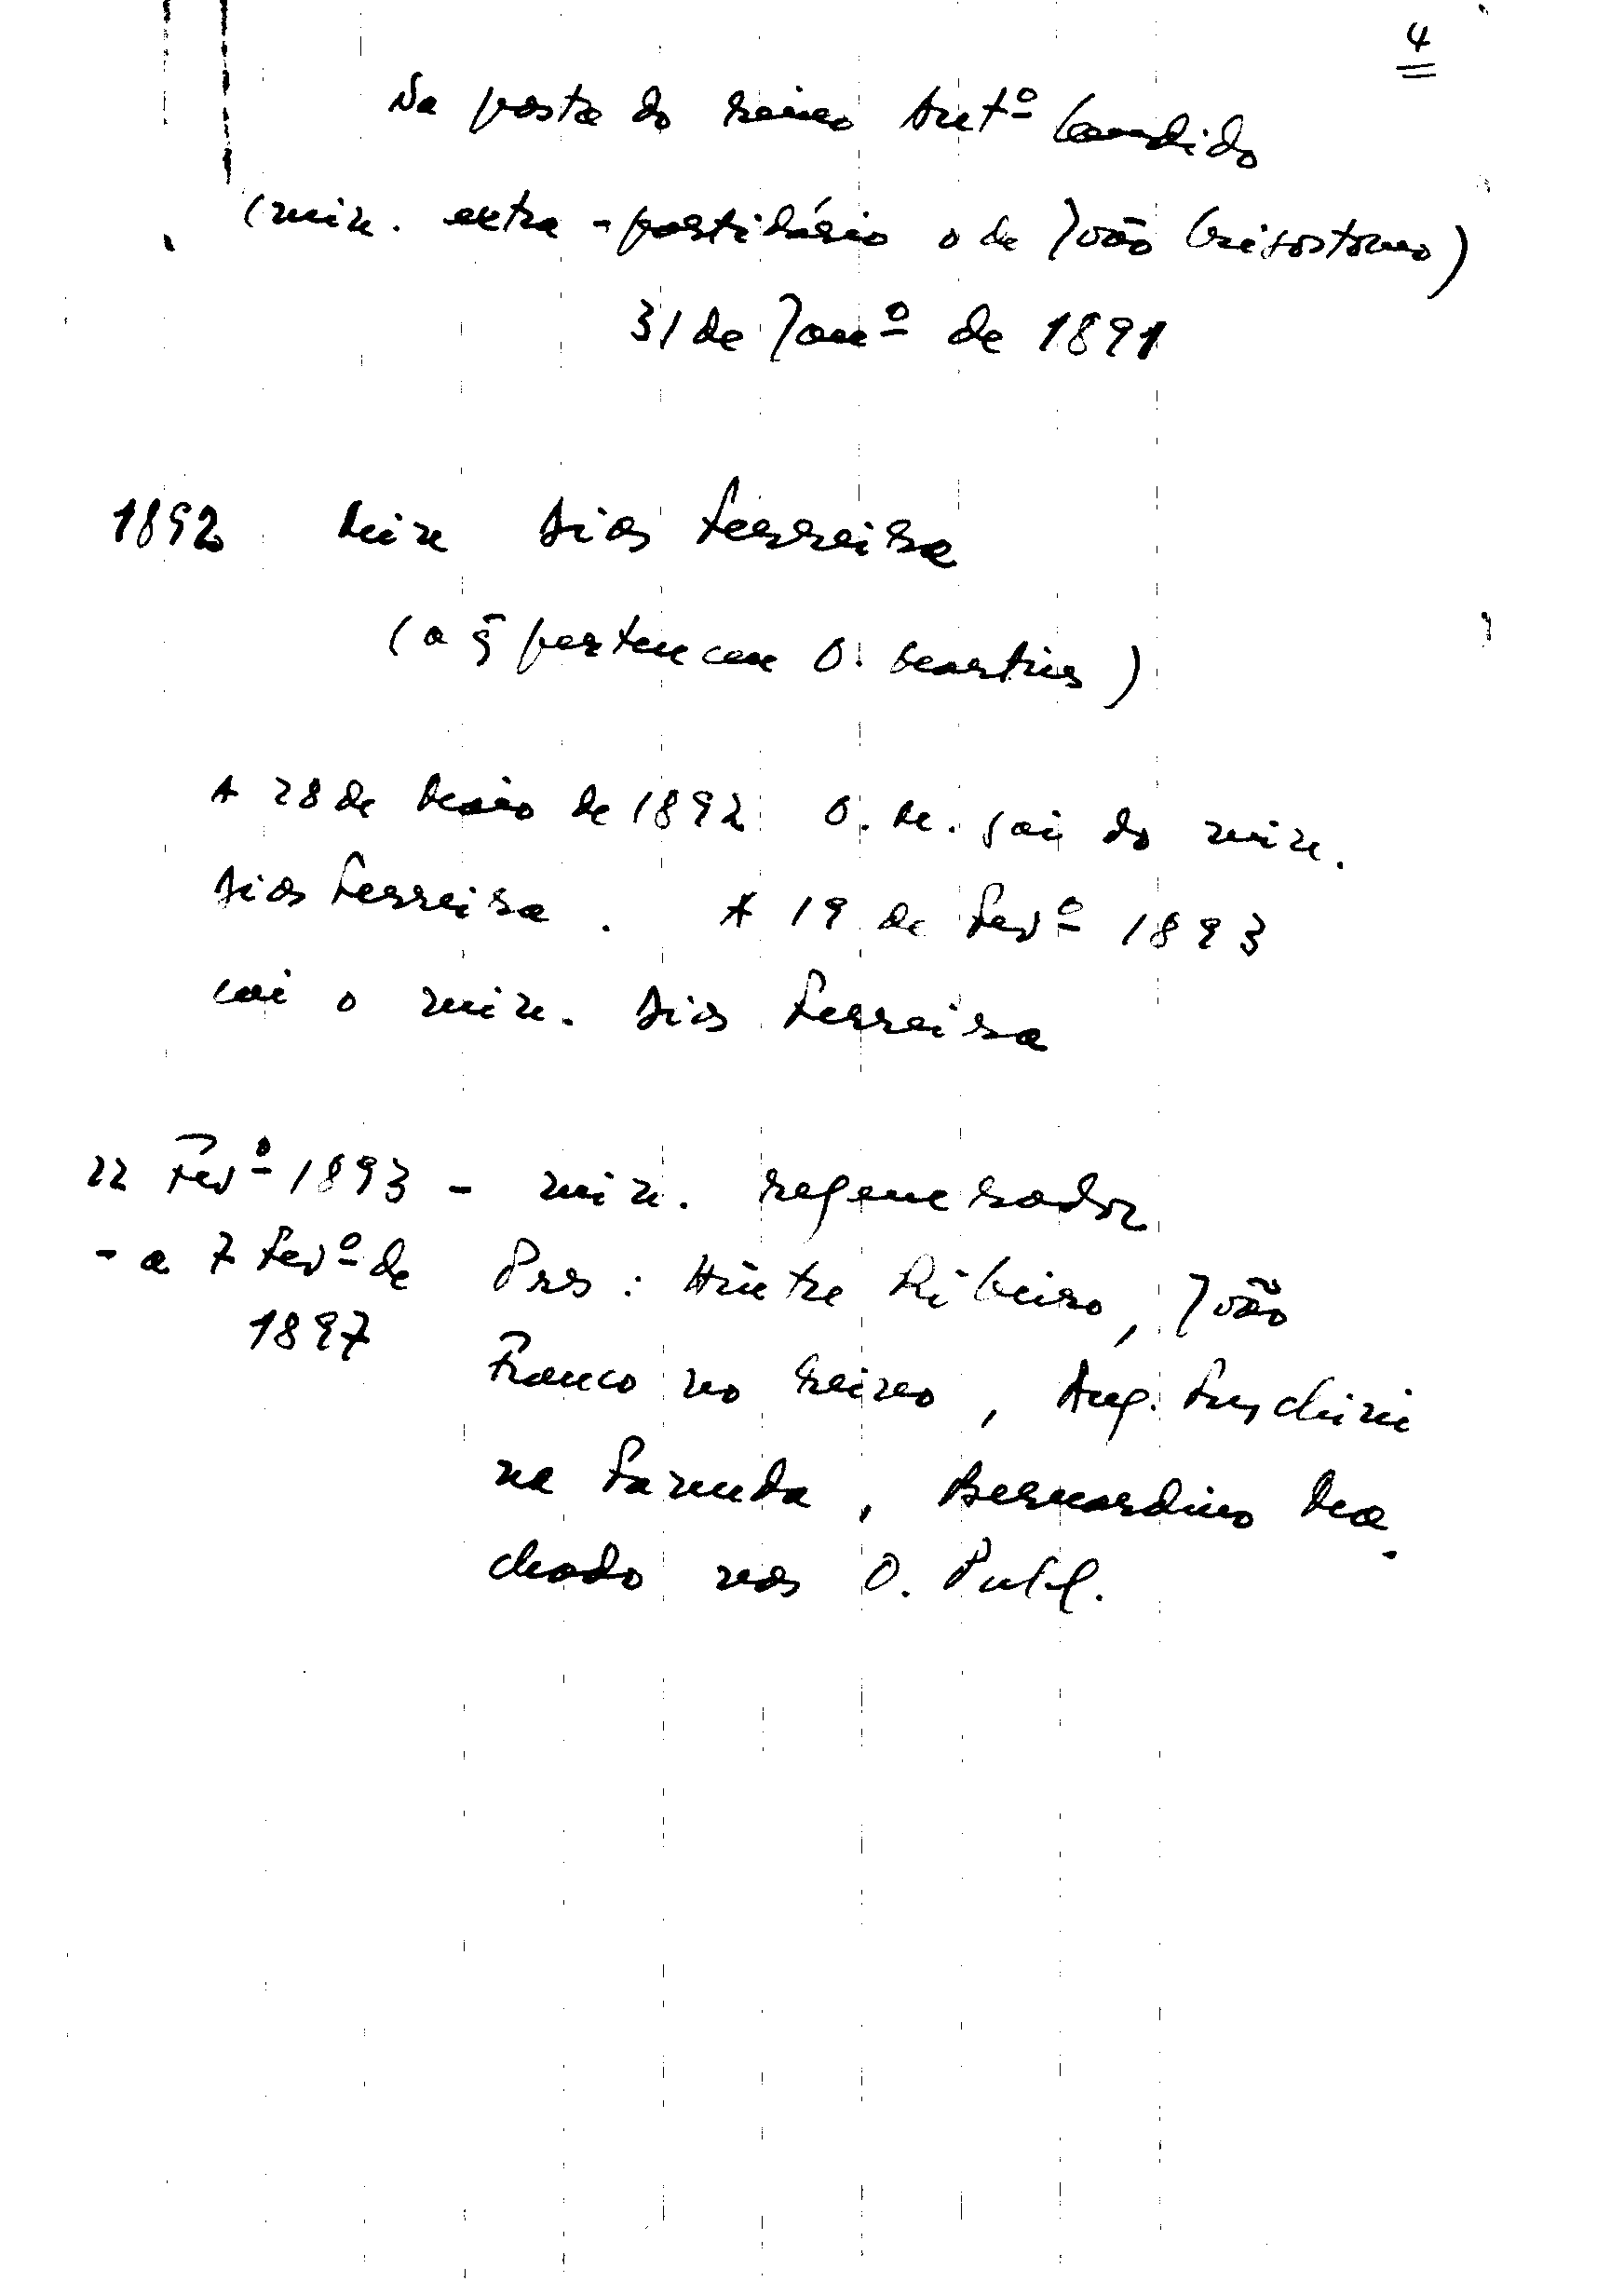 4
Na pasta do reino Antº Candido
(min. extra-partidário o de João Crisostomo)
31 de Janº de 1891
1892 Min Dias Ferreira
(a q̃ pertenceu O. Martins)
A 28 de Maio de 1892 O. M. sai do min.
Dias Ferreira. A 19 de Fevº 1893
cai o min. Dias Ferreira
22 Fevº 1893 - min. regenerador
- a 7 Fevº de Pres: Hintze Ribeiro, João
1897
Franco no Reino, Aug. Fuschini
na Fazenda, Bernardino Ma-
chado nas O. Publ.